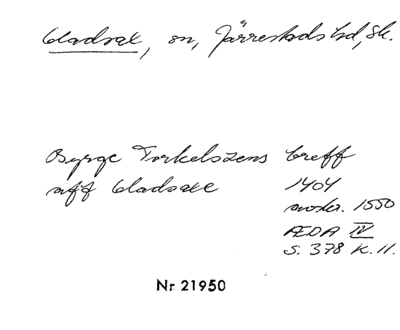 Gladsax, sn, Järrestads hd, Sk.
Byrge Torkelszens breff
aff Gladsaxe 1404
under. 1550
ÆDA IV
S. 378 K. 11.
Nr 21950